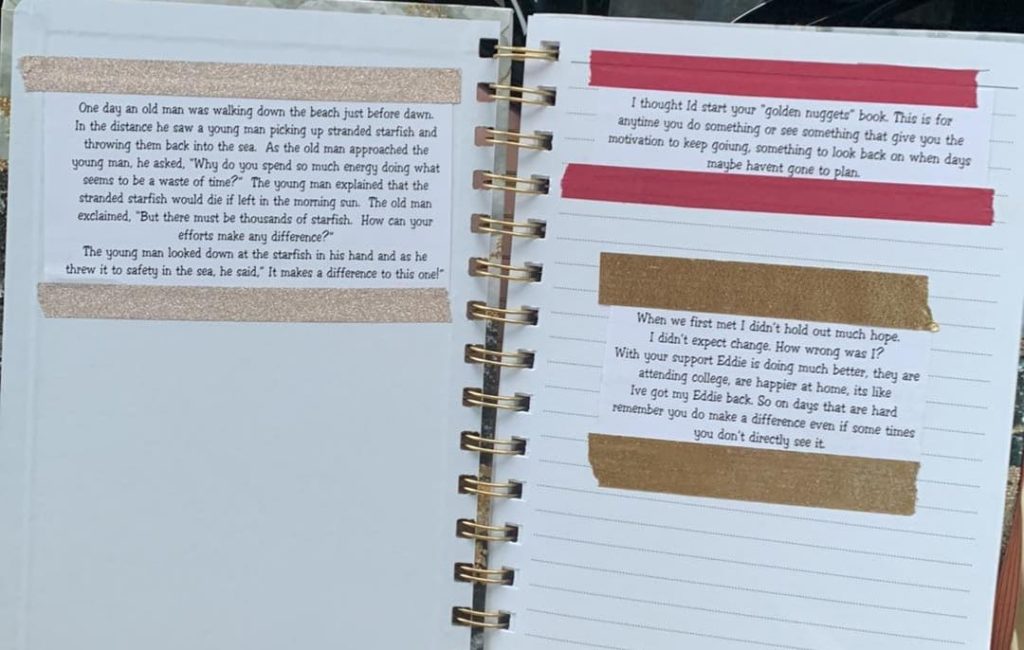 One day an old man was walking down the beach just before dawn.
In the distance he saw a young man picking up stranded starfish and
throwing them back into the sea. As the old man approached the
young man, he asked, "Why do you spend so much energy doing what
seems to be a waste of time?" The young man explained that the
stranded starfish would die if left in the morning sun. The old man
exclaimed, "But there must be thousands of starfish. How can your
efforts make any difference?"
The young man looked down at the starfish in his hand and as he
threw it to safety in the sea, he said," It makes a difference to this one!"
I thought Id start your "golden nuggets" book. This is for
anytime you do something or see something that give you the
motivation to keep goiung, something to look back on when days
maybe havent gone to plan.
When we first met I didn't hold out much hope.
I didn't expect change. How wrong was I?
With your support Eddie is doing much better, they are
attending college, are happier at home, its like
Ive got my Eddie back. So on days that are hard
remember you do make a difference even if some times
you don't directly see it.